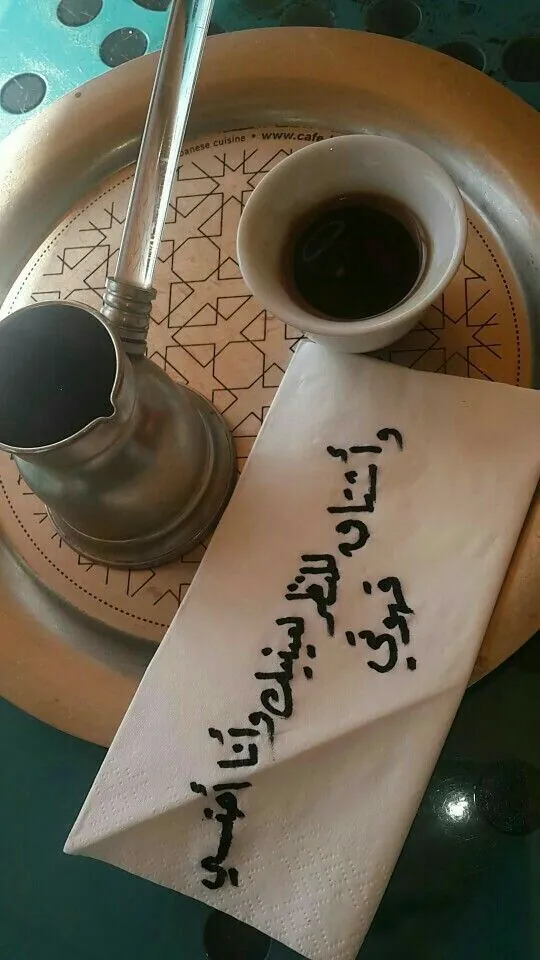 panese cuisine • www.cafe
وأشتاق للنظر لعينيك وأنا أحتسي
قهوتي